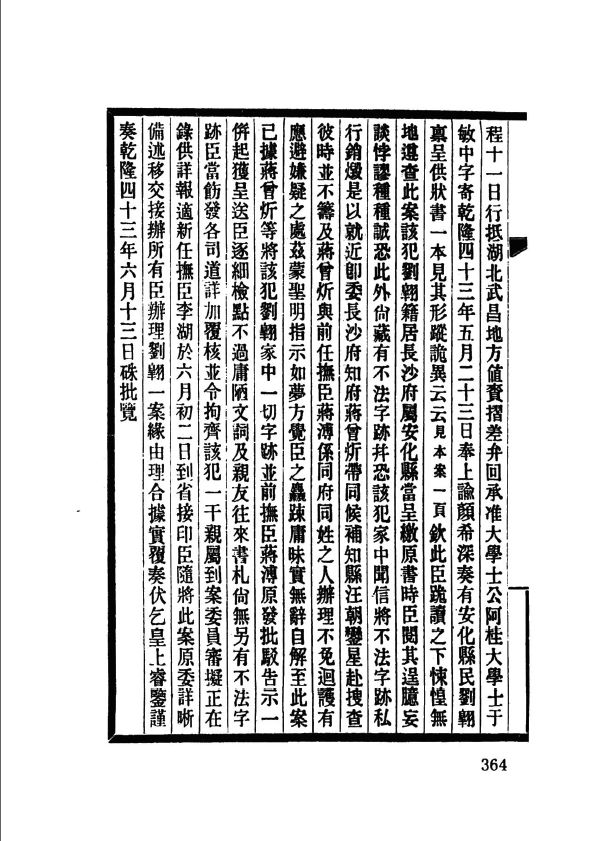 程十一日行抵湖北武昌地方値賫摺差弁回承准大學士公阿桂大學士于
敏中字寄乾隆四十三年五月二十三日奉上諭顏希深奏有安化縣民劉翶
禀呈供狀書一本見其形蹤詭異云云見本案一頁欽此臣跪讀之下悚惶無
地遵查此案該犯劉翶籍居長沙府屬安化縣當呈繳原書時臣閱其逞臆妄
談悖謬種種誠恐此外尙藏有不法字跡幷恐該犯家中聞信將不法字跡私
行銷燬是以就近卽委長沙府知府蔣曾炘帶同候補知縣汪朝鑾星赴搜查
彼時並不籌及蔣曾炘與前任撫臣蔣溥係同府同姓之人辦理不免迴護有
應避嫌疑之處茲蒙聖明指示如夢方覺臣之麤疎庸昧實無辭自解至此案
已據蔣曾炘等將該犯劉翶家中一切字跡並前撫臣蔣溥原發批駁告示一
倂起獲呈送臣逐細檢點不過庸陋文詞及親友往來書札尙無另有不法字
跡臣當飭發各司道詳加覆核並令拘齊該犯一干親屬到案委員審擬正在
錄供詳報適新任撫臣李湖於六月初二日到省接印臣隨將此案原委詳晰
備述移交接辦所有臣辦理劉翶一案緣由理合據實覆奏伏乞皇上睿鑒謹
奏乾隆四十三年六月十三日硃批覽
364